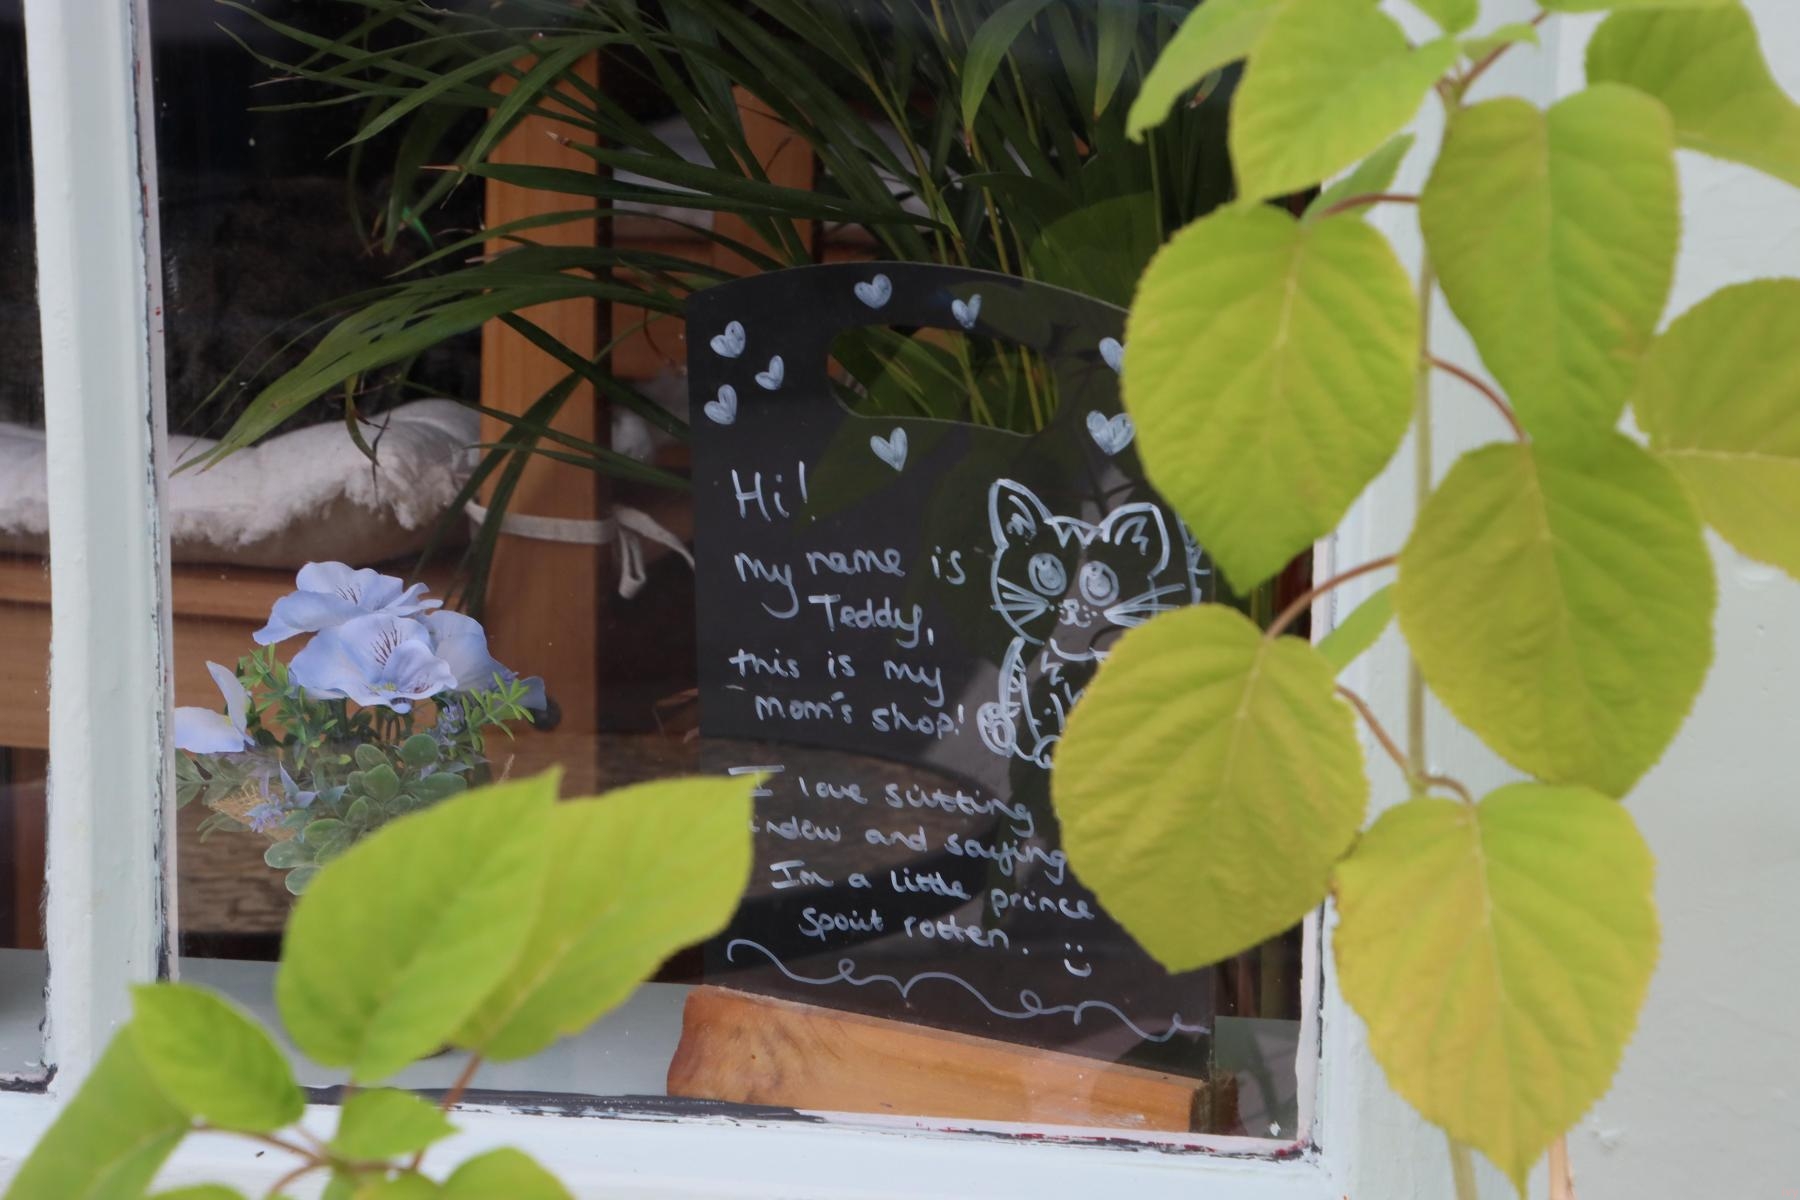 Hi!
my name is
Teddy,
this is my
mom's shop!
I love sitting
and saying
Im a little prince
spoilt rotten. :)